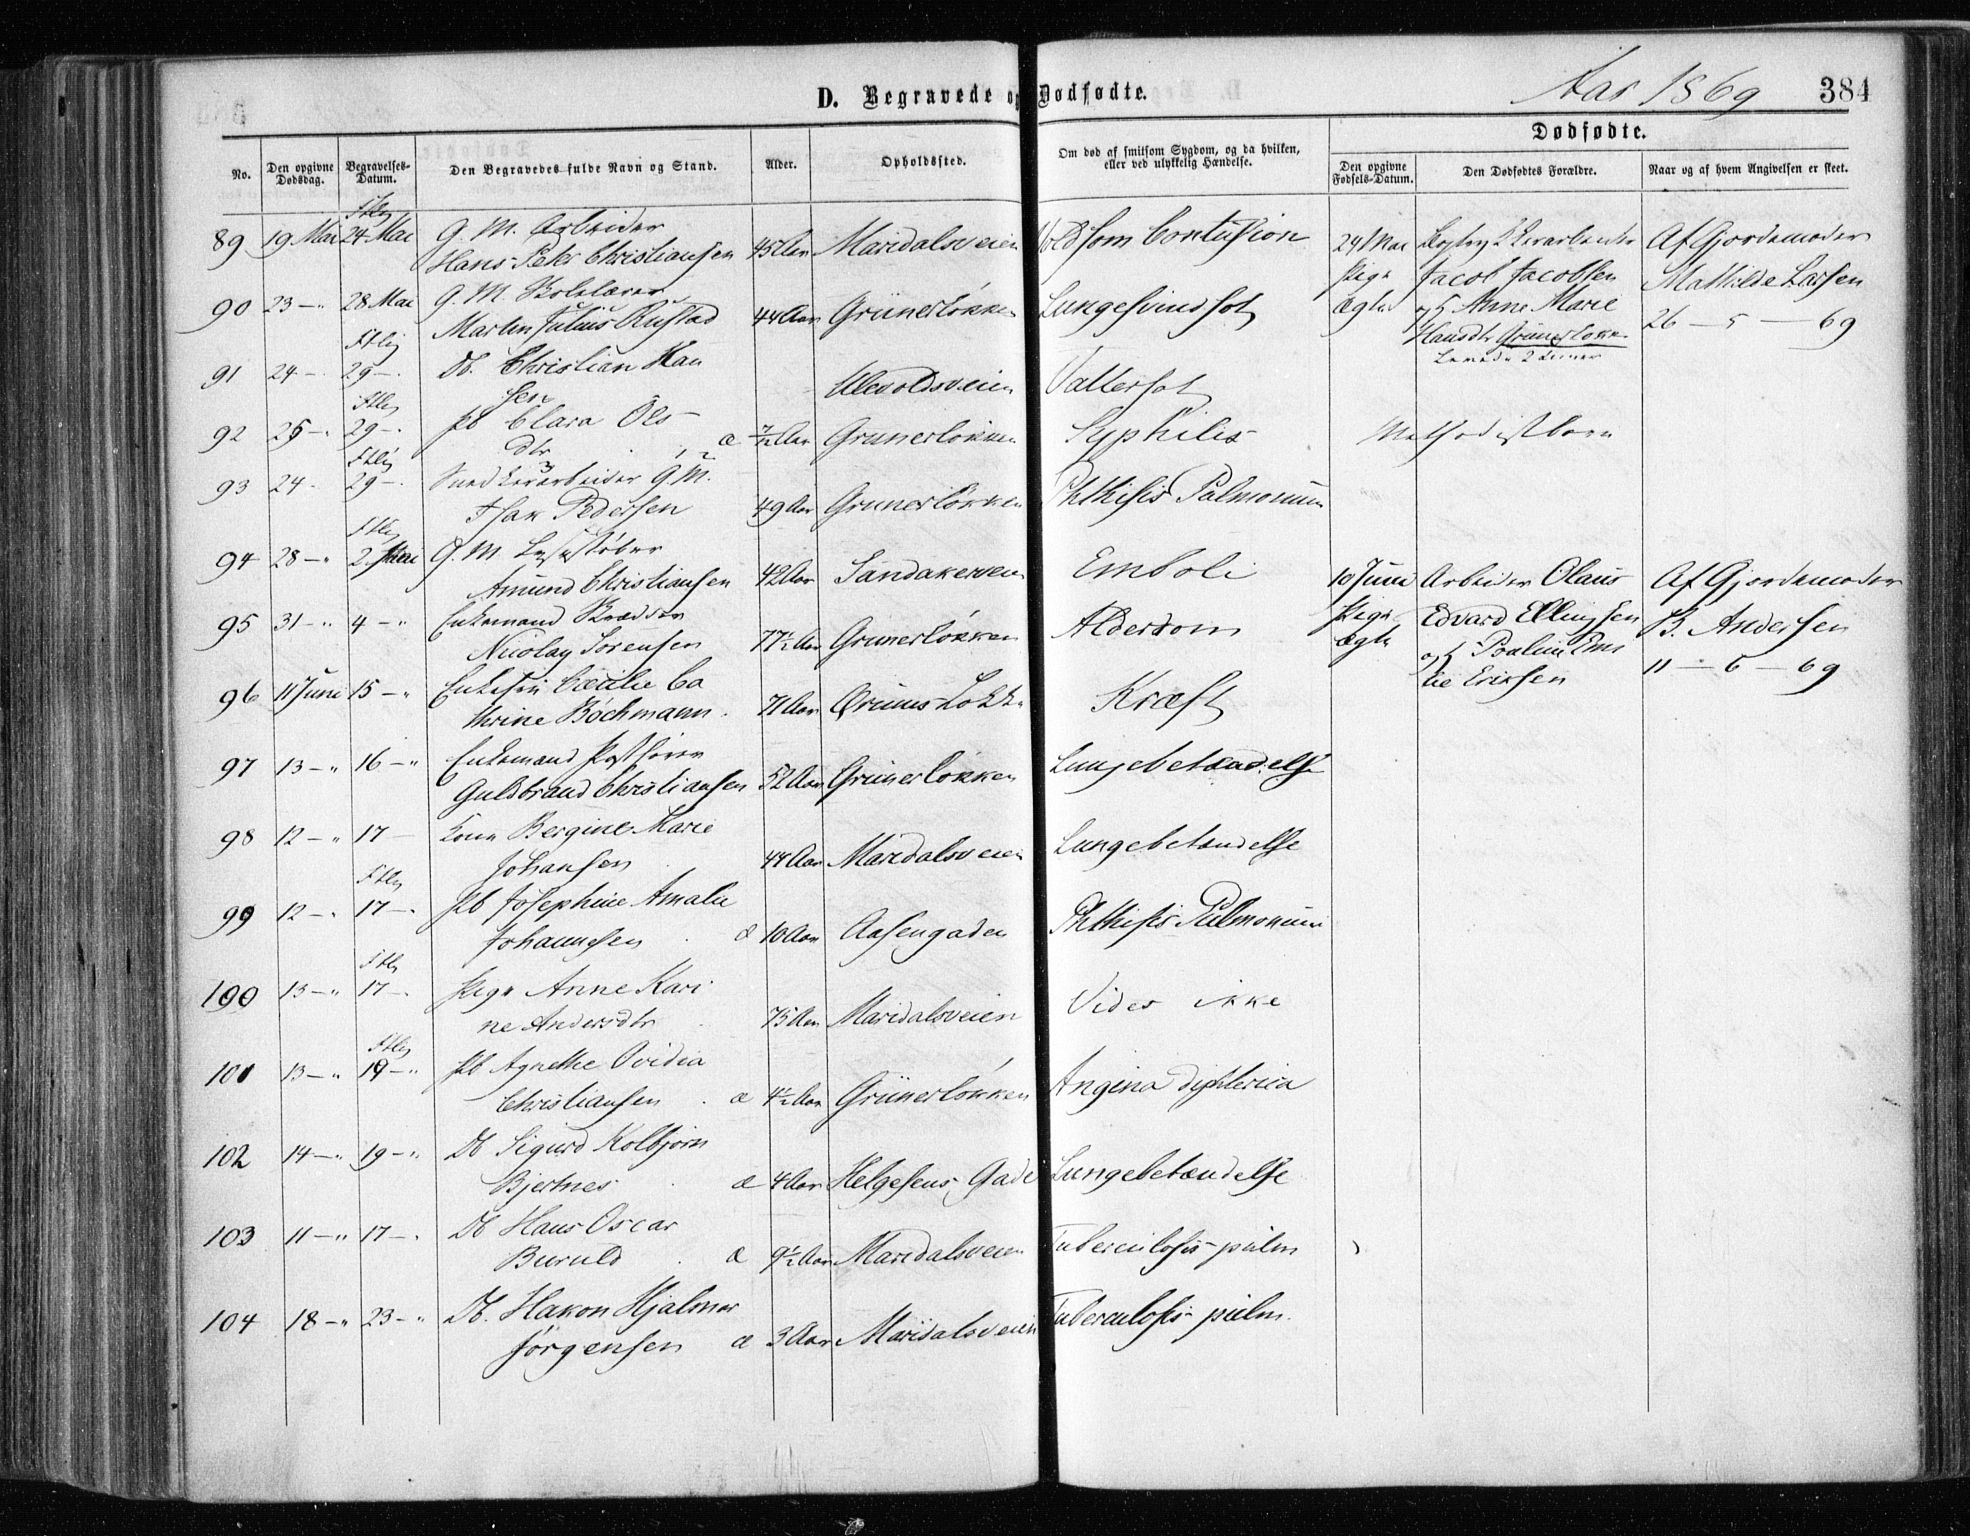 D. Begravede og Dødfødte.
Aar 1869
384
Dødfødte.
No.
Den opgivne Dødsdag.
Begravelses-Datum.
Den Begravedes fulde Navn og Stand.
Alder.
Opholdssted.
Om død af smitsom Sygdom, og da hvilken, eller ved ulykkelig Hændelse.
Den opgivne Fødsels-Datum.
Den Dødfødtes Forældre.
Naar og af hvem Angivelsen er skeet.
89 19 Mai 24 Mai G. M. Arbeider
Hans Peter Christiansen 45 Aar Maridalsveien Voldsom Contusion
90 23 – " 28 Mai G. M.
Martin Julius Rustad 44 Aar Grünerløkken Lungesvindsot
91 24 – 29 – Db. Christian Han
sen Ullevoldsveien Vattersot
92 25 – " 29 – Pb Clara Ols
dtr æ 7/12 Aar Grunerløkken Syphilis
93 24 29 – Snedkerarbeider G. M.
Isak Pedersen 49 Aar Grunerløkken Phthisis Pulmonum
94 28 – " 2. Juni G. M
Amund Christiansen 42 Aar Sandakerveien Emboli
95 31 – " 4 – " Enkemand
Nicolay Sorensen 77½ Aar Grunerløkken Alderdom
96 11 Juni 15 – " Enkefru Cæcilie Ca
thrine Bóchmann. 71 Aar Grüners Løkke Kræft
97 13 – " 16 – " Enkemand Postfører
Guldbrand Christiansen 52 Aar Grünerløkken Lungebetændelse
98 12 – " 17 – Kone Bergine Marie
Johansen 44 Aar Maridalsveien Lungebetændelse
99 12 – " 17 – Pb Josephine Amalie
Johannesen æ 10 Aar Aasengaden Phthisis Pulmonum
100 13 – " 17 – Pige Anne Kari
ne Andersdtr 75 Aar Maridalsveien Vides ikke
101 13 – " 19 – " Pb Agnethe Ovidia
Christiansen æ 4½ Aar Grünerløkken Angina dipterica
102 14 – " 19 – " Db Sigurd Kolbjørn
Bjertnes æ 4 Aar Helgesens Gade Lungebetændelse
103 11 – " 17 – Db Hans Oscar
Buruld æ 9½ Aar Maridalsveien Tuberculosis pulm
104 18 – " 23 – " Db. Hakon Hjalmar
Jörgensen æ 3 Aar Maridalsveien Tuberculosis pulm.
24 Mai
Pige
ægte
Jacob Jacobsen
og Anne Marie
Hansdtr Grünerløkken
Af Gjordemoder
Mathilde Larsen
26 – 5 – 69
Methodistbarn
10 Juni
Pige
ægte
Arbeider Olaus
Edvard Ellingsen
og Pouline Emi
lie Eriksen
Af Gjordemoder
B. Andersen
11 – 6 – 69